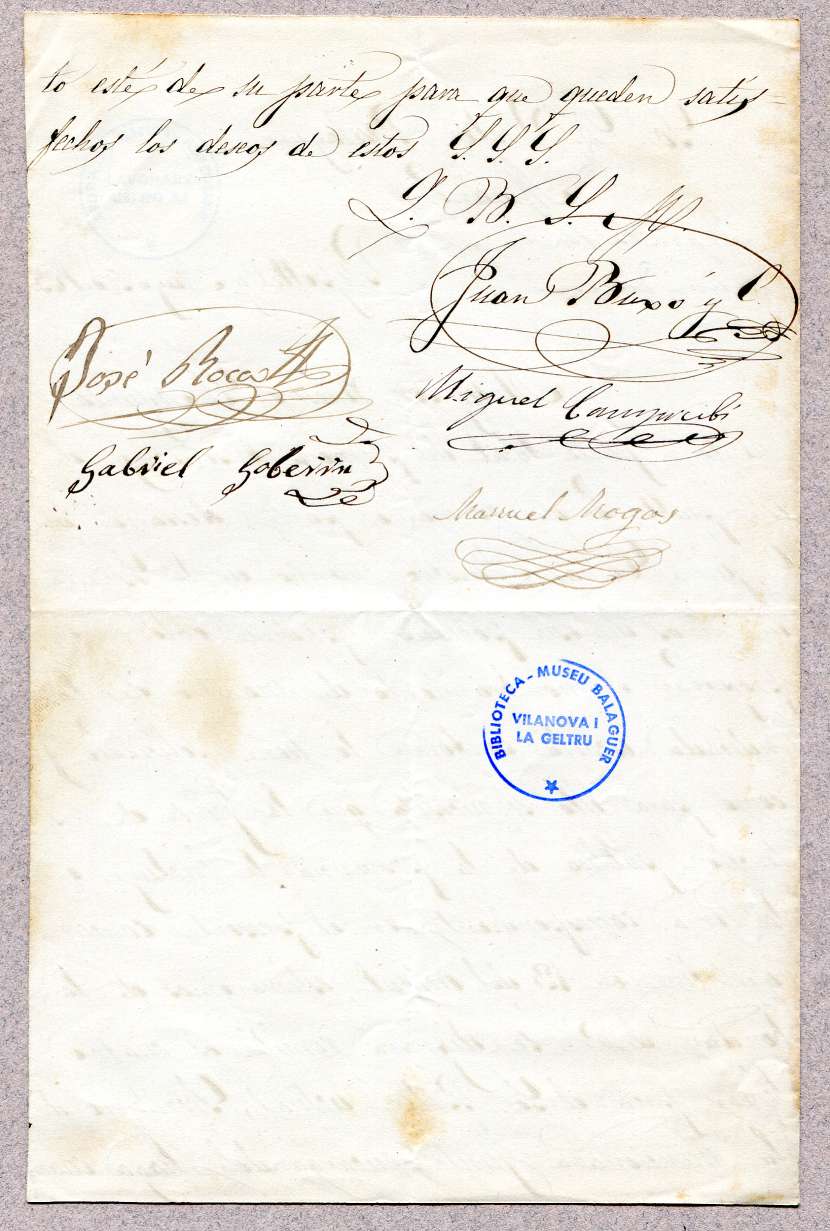 to esté de su parte para que queden satis=
fechos los deseos de estos S.S.S.
Q. B. S. M.
Juan Buxó y
José Roca
Miguel Camprubí
Gabriel
Manuel Mogas
BIBLIOTECA-MUSEU BALAGUER
VILANOVA I
LA GELTRU